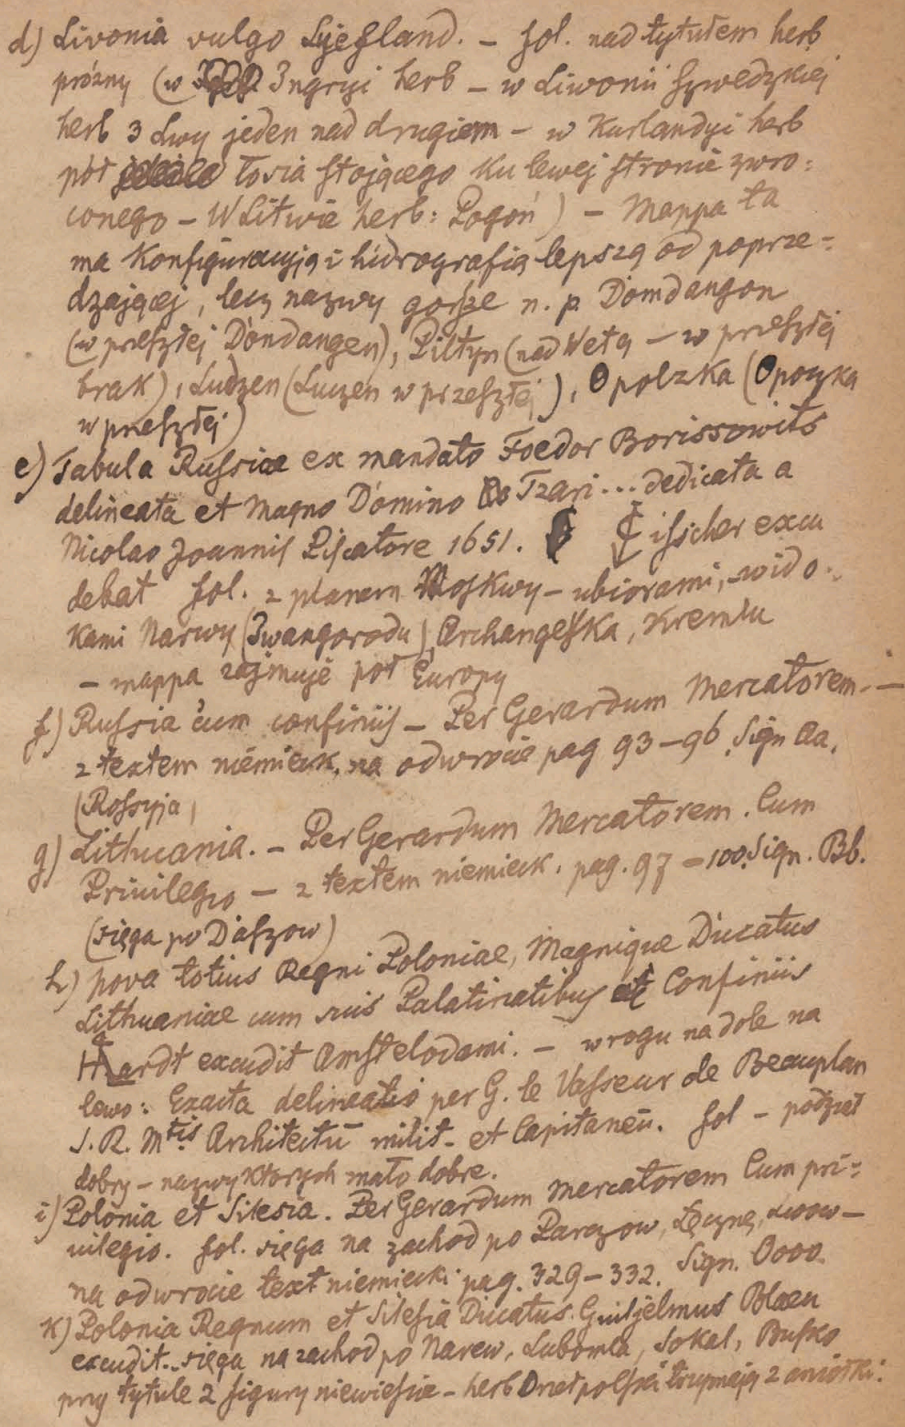 d) Livonia vulgo Lyefland. – fol. nad tytułem herb
próżny (w Ingryi herb – w Liwonii Szwedzkiej
herb 3 Lwy jeden nad drugiem – w Kurlandyi herb
pół łosia stojącego ku lewej stronie zwro:
conego – W Litwie herb: Pogoń) – Mappa ta
ma Konfiguracyją i hidrografią lepszą od poprze-
dzającej, lecz nazwy gorsze n. p. Domdangon
(w przeszłej Dondangen), Piltyn (nad Wetą – w przeszłej
brak), Ludzen (Luczen w przeszłej), Opolzka (Opoczka
w przeszłej)
e) Tabula Russiae ex mandato Foedor Borissowits
delineata et Magno Domino Tzari ... dedicata a
Nicolao Joannis Piscatore 1651. ifscher excu
debat fol. z planem Moskwy – ubiorami, – wido-
kami Narwy (Iwangorodu), Archangelska, Kremlu
– mappa zajmuje pół Europy
f) Russia cum confiniis – Per Gerardum Mercatorem. –
z textem niemieck. na odwrocie pag 93–96 Sign Aa.
(Rossyja)
g) Lithuania. – Per Gerardum Mercatorem. Cum
Privilegio – z textem niemieck. pag. 97 – 100. Sign. Bb.
(sięga po Daszow)
h) Nova totius Regni Poloniae, Magnique Ducatus
Lithuaniae cum suis Palatinatibus et Confiniis
Hardt excudit Amstelodami. – w rogu na dole na
lewo: Exacta delineatio per G. le Vasseur de Beauplan
S. R. Mtis Architectū milit. et Capitaneū. fol –
dobry – nazwy których mało dobre.
i) Polonia et Silesia. Per Gerardum Mercatorem Cum pri-
uilegio. fol. sięga na zachod po Parczow, Łęcznę, Lwow –
na odwrocie text niemiecki pag. 329–332. Sign. Oooo.
K) Polonia Regnum et Silesia Ducatus. Guiljelmus Blaeu
excudit.. sięga na zachod po Narew, Lubomla, Sokal, Busko
przy tytule 2 figury niewieście – herb Orzeł polski trzymają 2 aniołki.